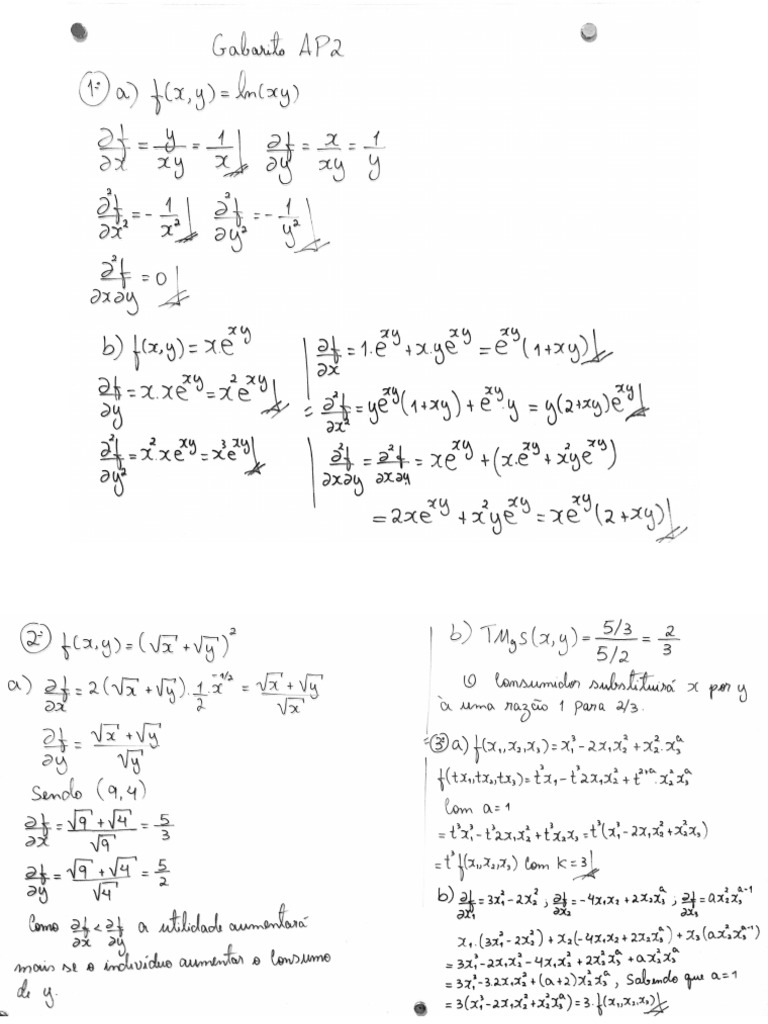 Gabarito AP2
1ª a) f(x,y) = ln(xy)
∂f/∂x = y/xy = 1/x ∂f/∂y = x/xy = 1/y
∂²f/∂x² = -1/x² ∂²f/∂y² = -1/y²
∂²f/∂x∂y = 0
b) f(x,y) = x.e^xy
∂f/∂y = x.xe^xy = x²e^xy
∂²f/∂y² = x².xe^xy = x³e^xy
∂f/∂x = 1.e^xy + x.ye^xy = e^xy(1+xy)
= ∂²f/∂x² = ye^xy(1+xy) + e^xy.y = y(2+xy)e^xy
∂²f/∂x∂y = ∂²f/∂x∂y = xe^xy + (x.e^xy + x²ye^xy)
= 2xe^xy + x²ye^xy = xe^xy(2+xy)
2ª f(x,y) = (√x + √y)²
a) ∂f/∂x = 2(√x + √y).1/2.x^-1/2 = √x + √y/√x
∂f/∂y = √x + √y/√y
Sendo (9,4)
∂f/∂x = √9 + √4/√9 = 5/3
∂f/∂y = √9 + √4/√4 = 5/2
Como ∂f/∂x < ∂f/∂y a utilidade aumentará
mais se o indivíduo aumentar o consumo
de y.
b) TMgS(x,y) = 5/3 / 5/2 = 2/3
O consumidor substituirá x por y
à uma razão 1 para 2/3.
=3ª a) f(x₁,x₂,x₃) = x₁³ - 2x₁x₂² + x₂².x₃^a
f(tx₁,tx₂,tx₃) = t³x₁ - t³2x₁x₂² + t^2+a.x₂²x₃^a
Com a = 1
= t³x₁³ - t³2x₁x₂² + t³x₂²x₃ = t³(x₁³ - 2x₁x₂² + x₂²x₃)
= t³f(x₁,x₂,x₃) com k = 3
b) ∂f/∂x₁ = 3x₁² - 2x₂² ; ∂f/∂x₂ = -4x₁x₂ + 2x₂x₃^a ; ∂f/∂x₃ = ax₂²x₃^a-1
x₁.(3x₁² - 2x₂²) + x₂(-4x₁x₂ + 2x₂x₃^a) + x₃(ax₂²x₃^a-1)
= 3x₁³ - 2x₁x₂² - 4x₁x₂² + 2x₂²x₃^a + ax₂²x₃^a
= 3x₁³ - 3.2x₁x₂² + (a+2)x₂²x₃^a, Sabendo que a = 1
= 3(x₁³ - 2x₁x₂² + x₂²x₃^a) = 3.f(x₁,x₂,x₃)